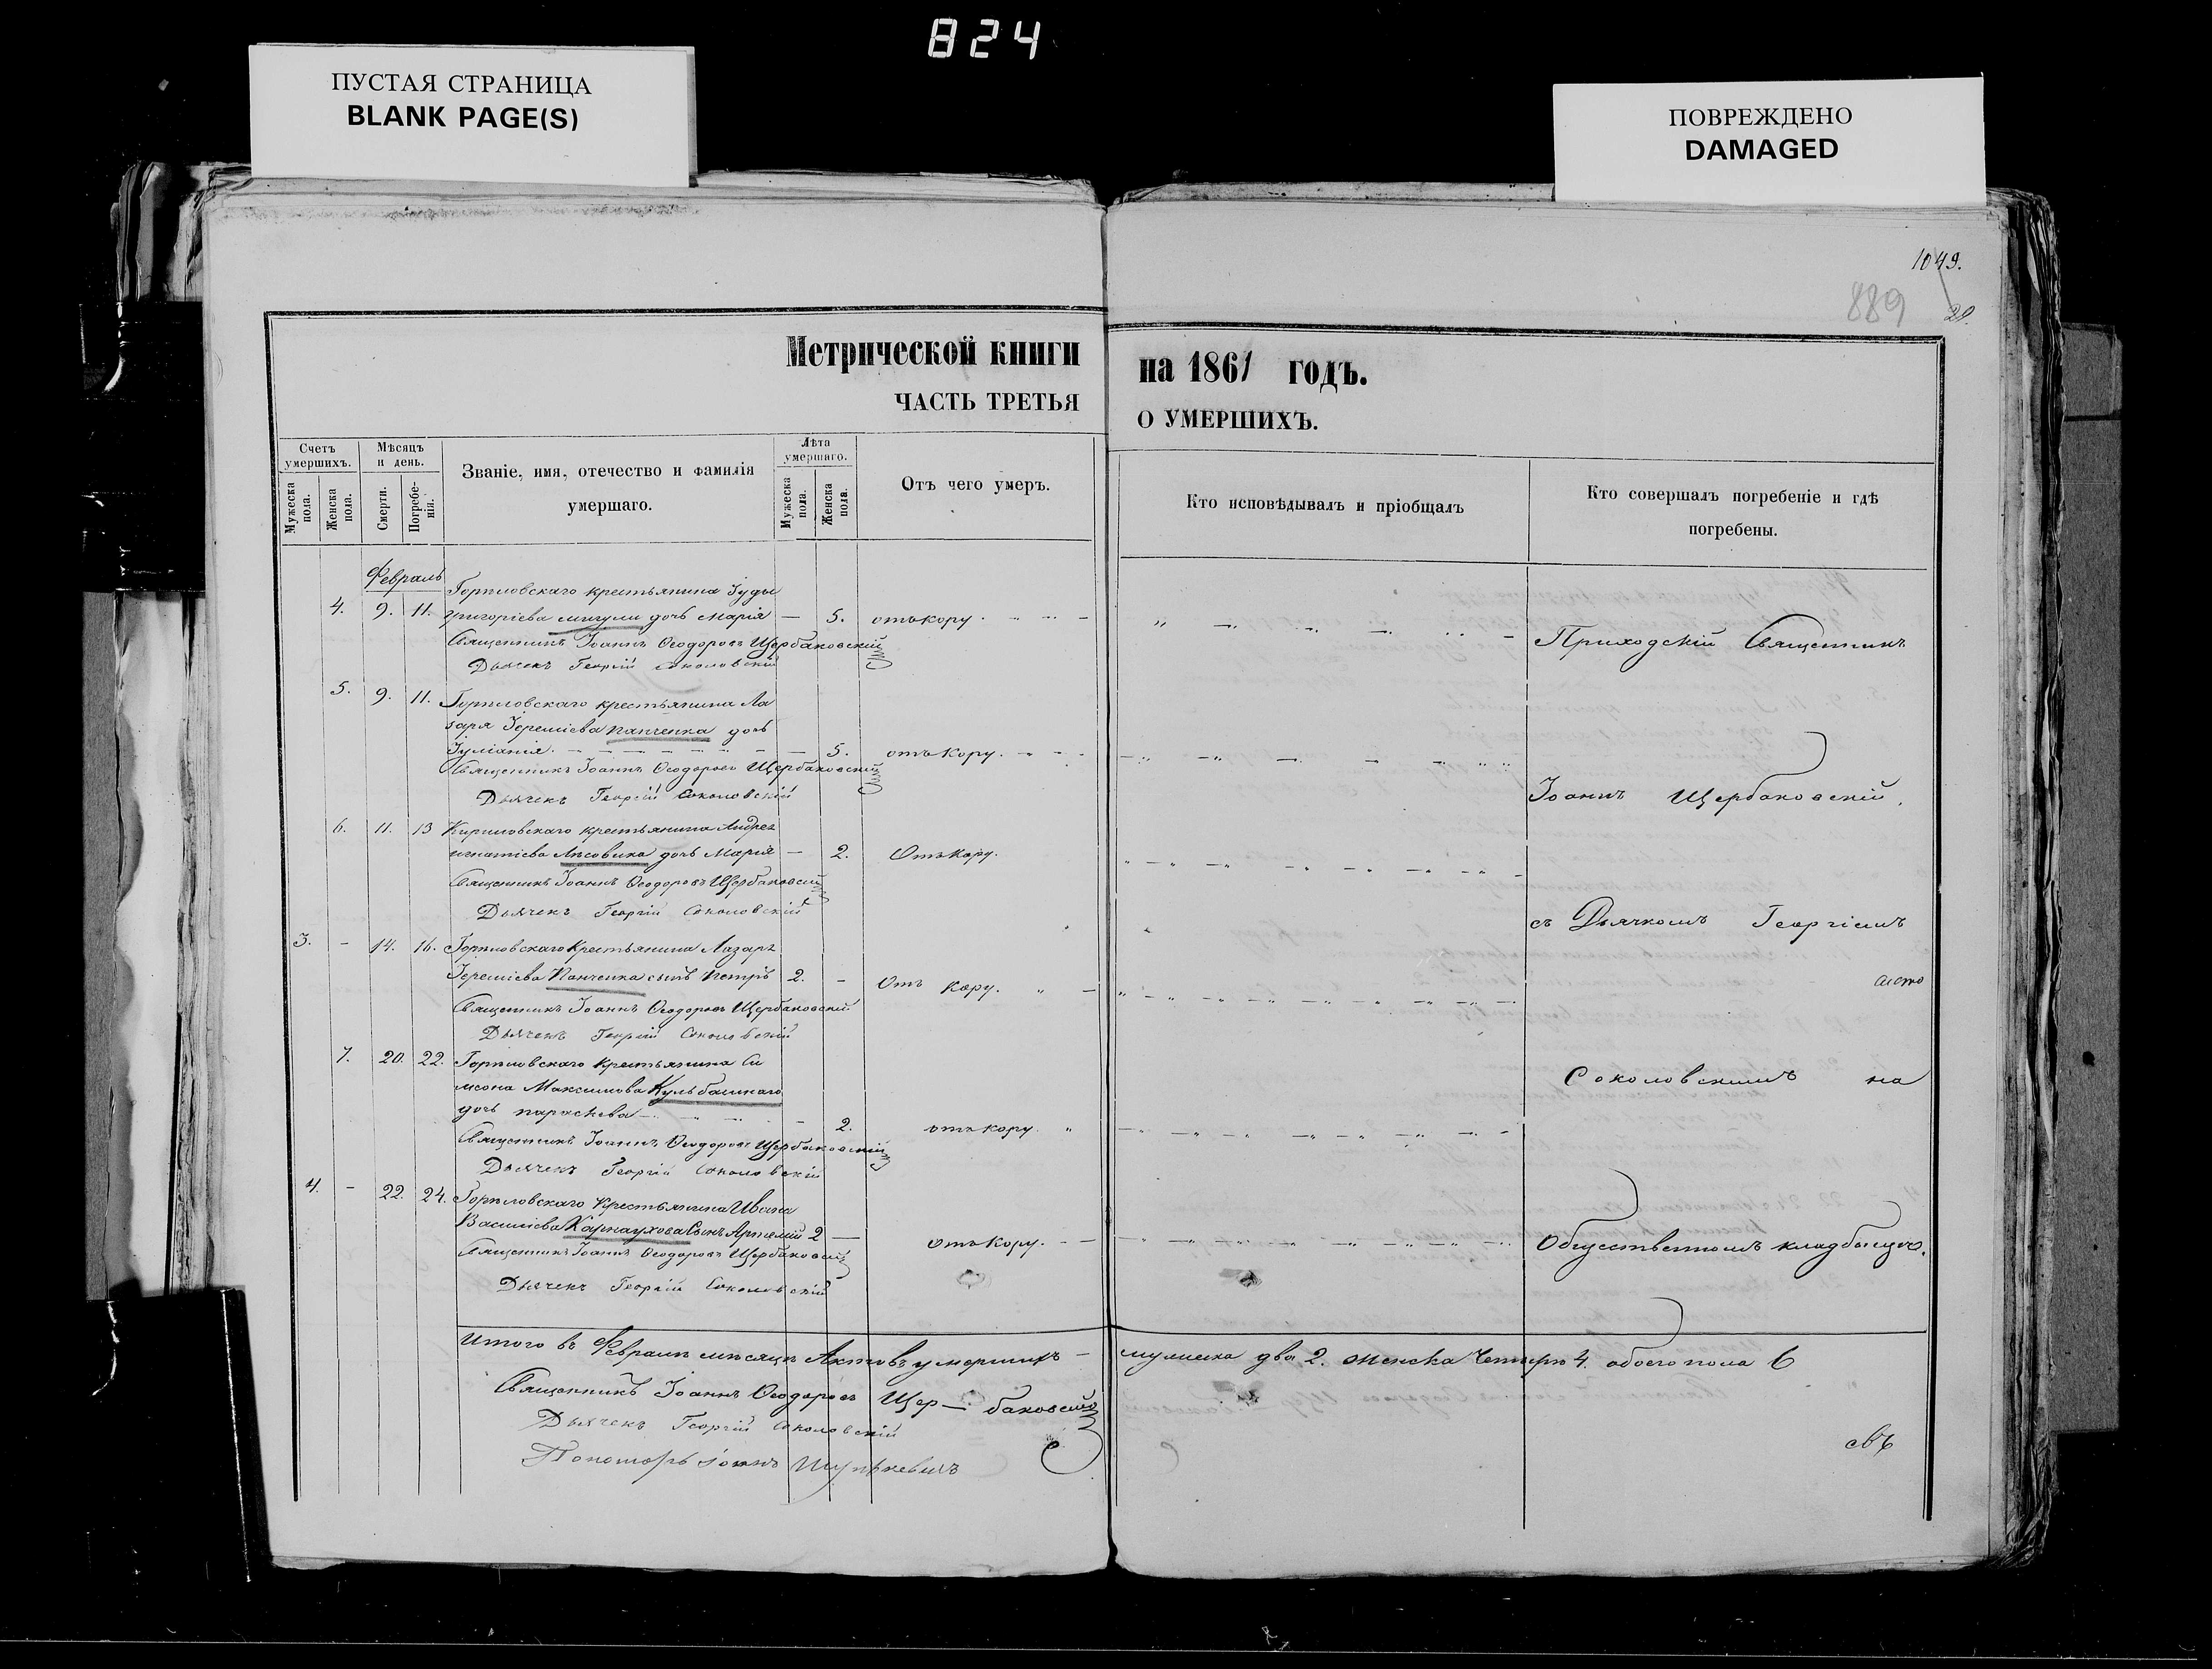 824
ПУСТАЯ СТРАНИЦА
BLANK PAGE(S)
ПОВРЕЖДЕНО
DAMAGED
1049.
889
Метрической книги на 1861 годъ.
ЧАСТЬ ТРЕТЬЯ О УМЕРШИХЪ.
Счетъ умершихъ.
Мужеска пола.
Женска пола.
Мѣсяцъ и день.
Смерти.
Погребенія.
Званіе, имя, отечество и фамилія умершаго.
Лѣта умершаго.
Мужеска пола.
Женска пола.
Отъ чего умеръ.
Кто исповѣдывалъ и пріобщалъ
Кто совершалъ погребеніе и гдѣ погребены.
Февраль
крестьянина Іуды
4. 9. 11. григоріева дочь Марія — 5. отъ кору.
Священникъ Іоаннъ Ѳеодоровъ Щербаковскій
Дьячекъ Георгій Соколовскій
Приходскій Священникъ
5. 9. 11. крестьянина Ла
заря Іереміева Панченка дочь
Іуліанія. — 5. отъ кору.
Священникъ Іоаннъ Ѳеодоровъ Щербаковскій
Дьячекъ Георгій Соколовскій
Іоаннъ Щербаковскій,
6. 11. 13 крестьянина Андрея
игнатіева Лѣсовика дочь Марія — 2. Отъ кору.
Священникъ Іоаннъ Ѳеодоровъ Щербаковскій
Дьячекъ Георгій Соколовскій
съ Дьячкомъ Георгіемъ
3. - 14. 16. крестьянина Лазаря
Іереміева Панченка сынъ Петръ 2. - Отъ кору.
Священникъ Іоаннъ Ѳеодоровъ Щербаковскій
Дьячекъ Георгій Соколовскій
7. 20. 22. крестьянина Си
меона Максимова Кульбашнаго
дочь параскева — 2. отъ кору.
Священникъ Іоаннъ Ѳеодоровъ Щербаковскій
Дьячекъ Георгій Соколовскій
Соколовскимъ на
4. - 22. 24. крестьянина Ивана
Василіева Карнаухова Сынъ Артемій 2 — отъ кору.
Священникъ Іоаннъ Ѳеодоровъ Щербаковскій
Дьячекъ Георгій Соколовскій
Общественномъ кладбищѣ.
Итого въ Февралѣ мѣсяцѣ Актовъ умершихъ — мужеска два 2. женска Четыре 4. обоего пола 6
Священникъ Іоаннъ Ѳеодоровъ Щер—баковскій
Дьячекъ Георгій Соколовскій
Пономарь Іоаннъ